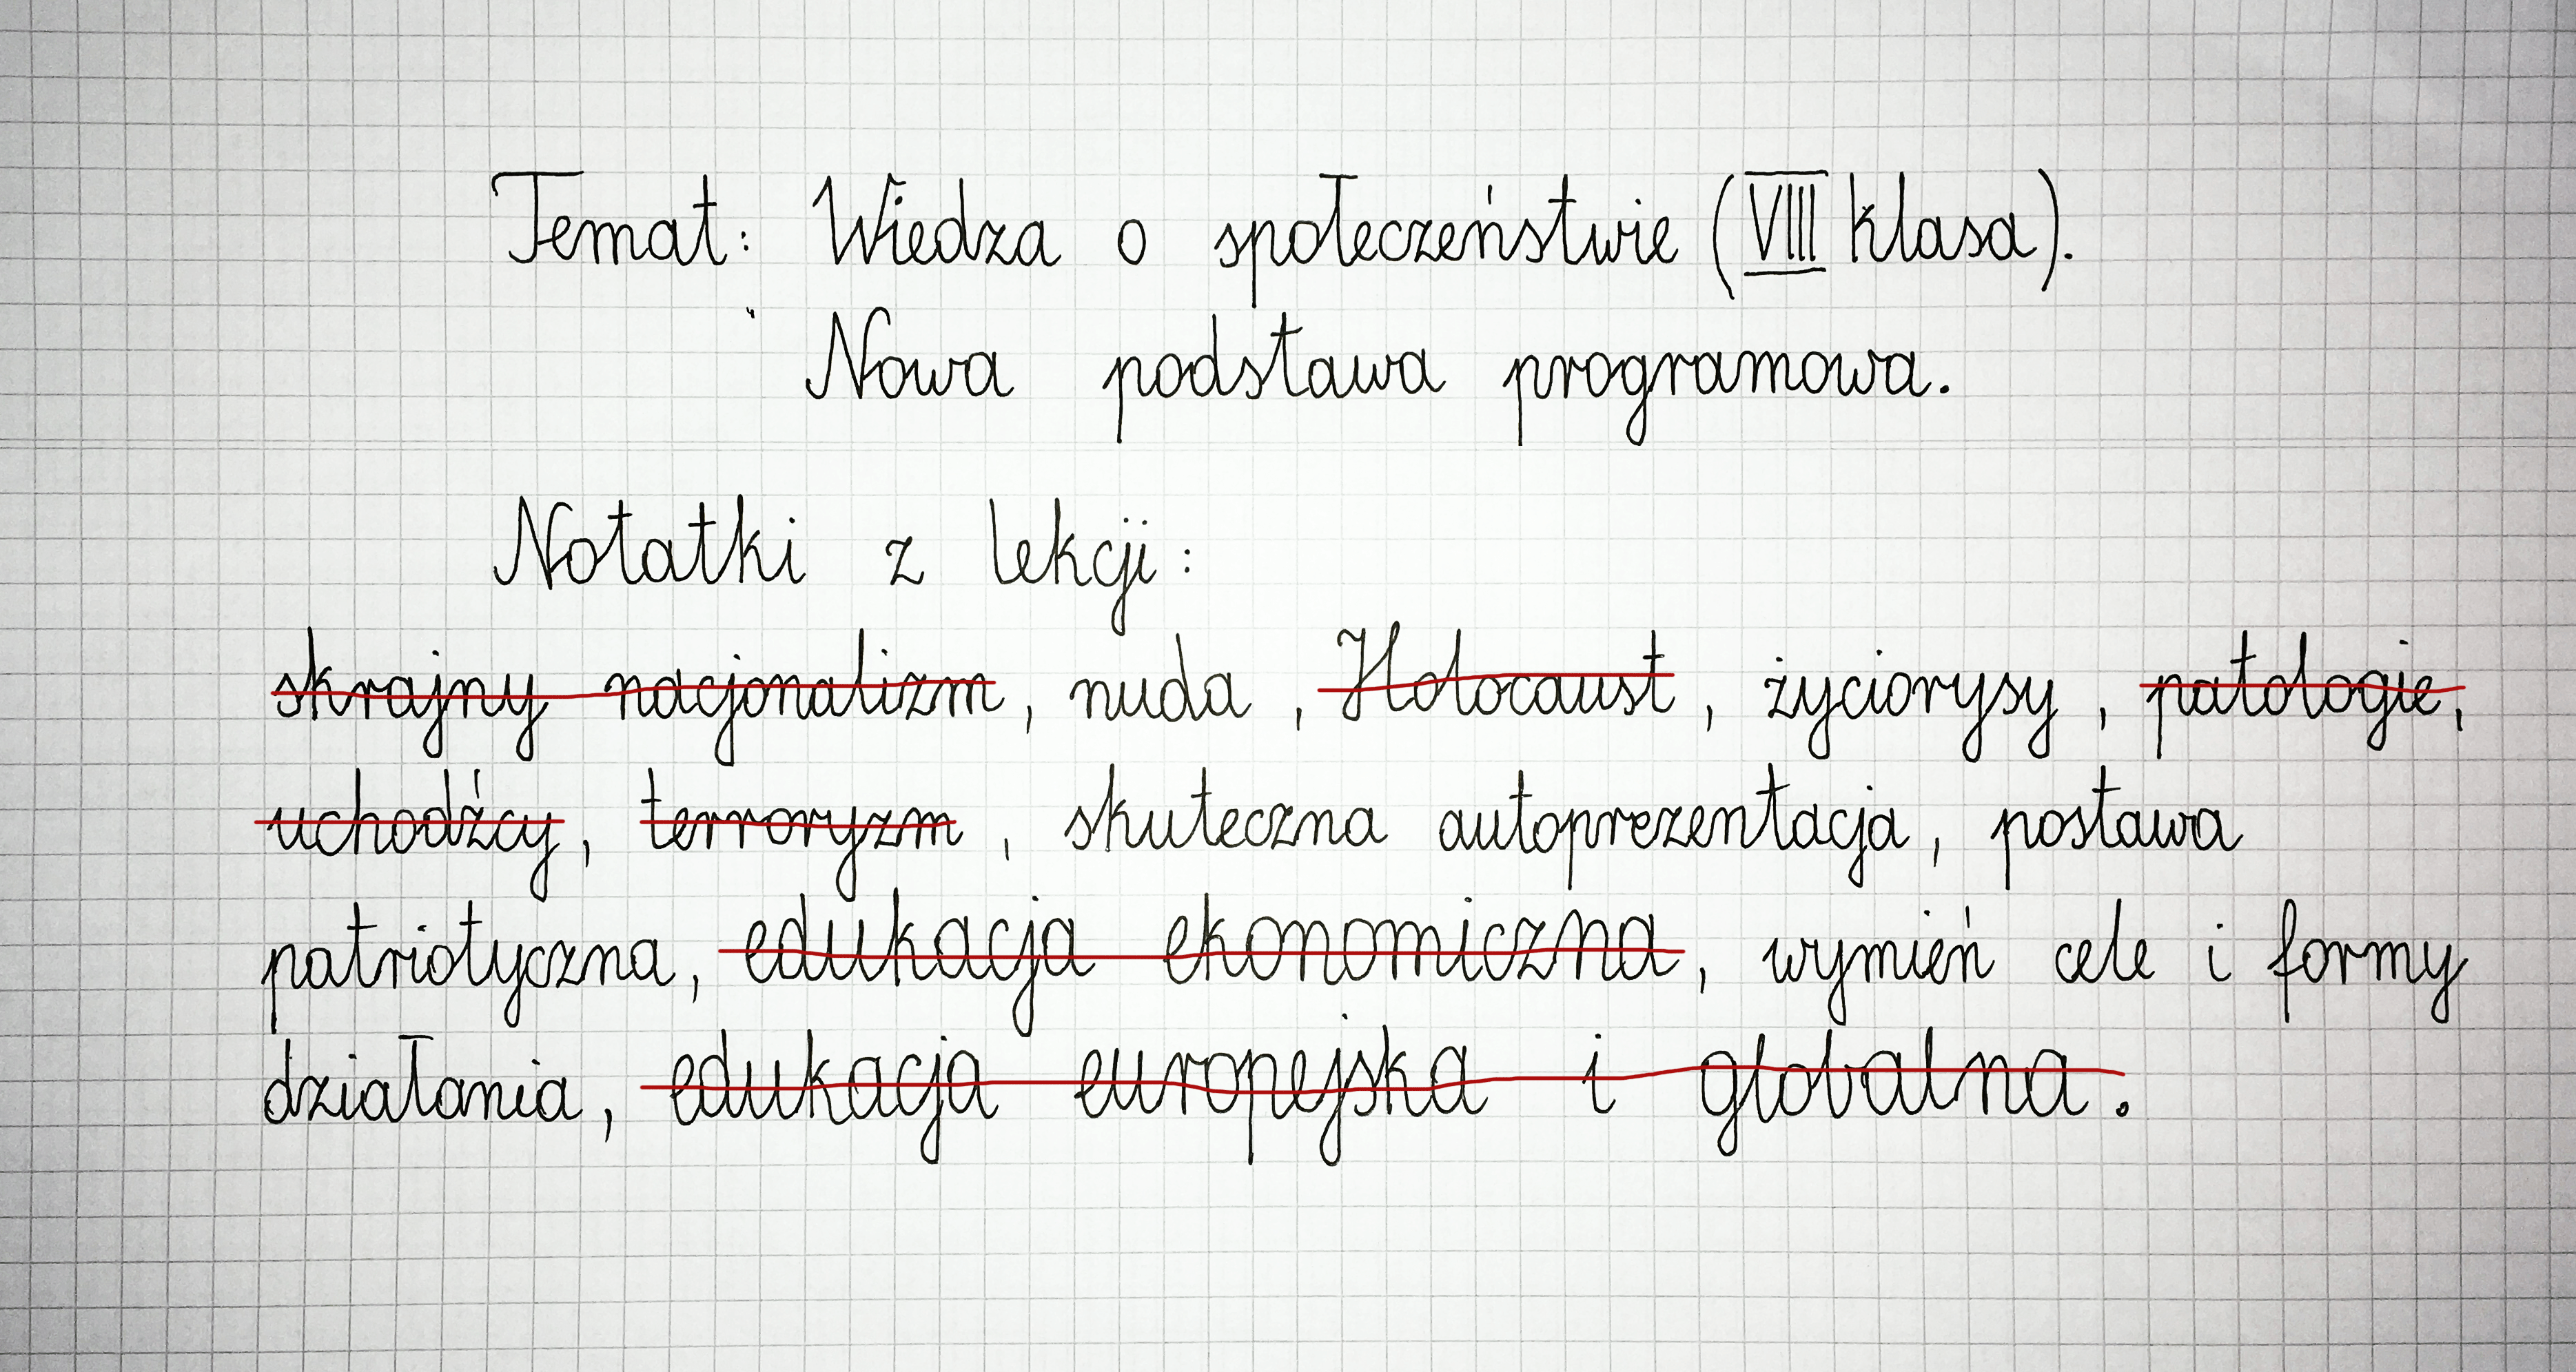 Temat: Wiedza o społeczeństwie (VIII klasa).
Nowa podstawa programowa.
Notatki z lekcji:
skrajny nacjonalizm, nuda, Holocaust, życiorysy, patologie,
uchodźcy, terroryzm, skuteczna autoprezentacja, postawa
patriotyczna, edukacja ekonomiczna, wymień cele i formy
działania, edukacja europejska i globalna.